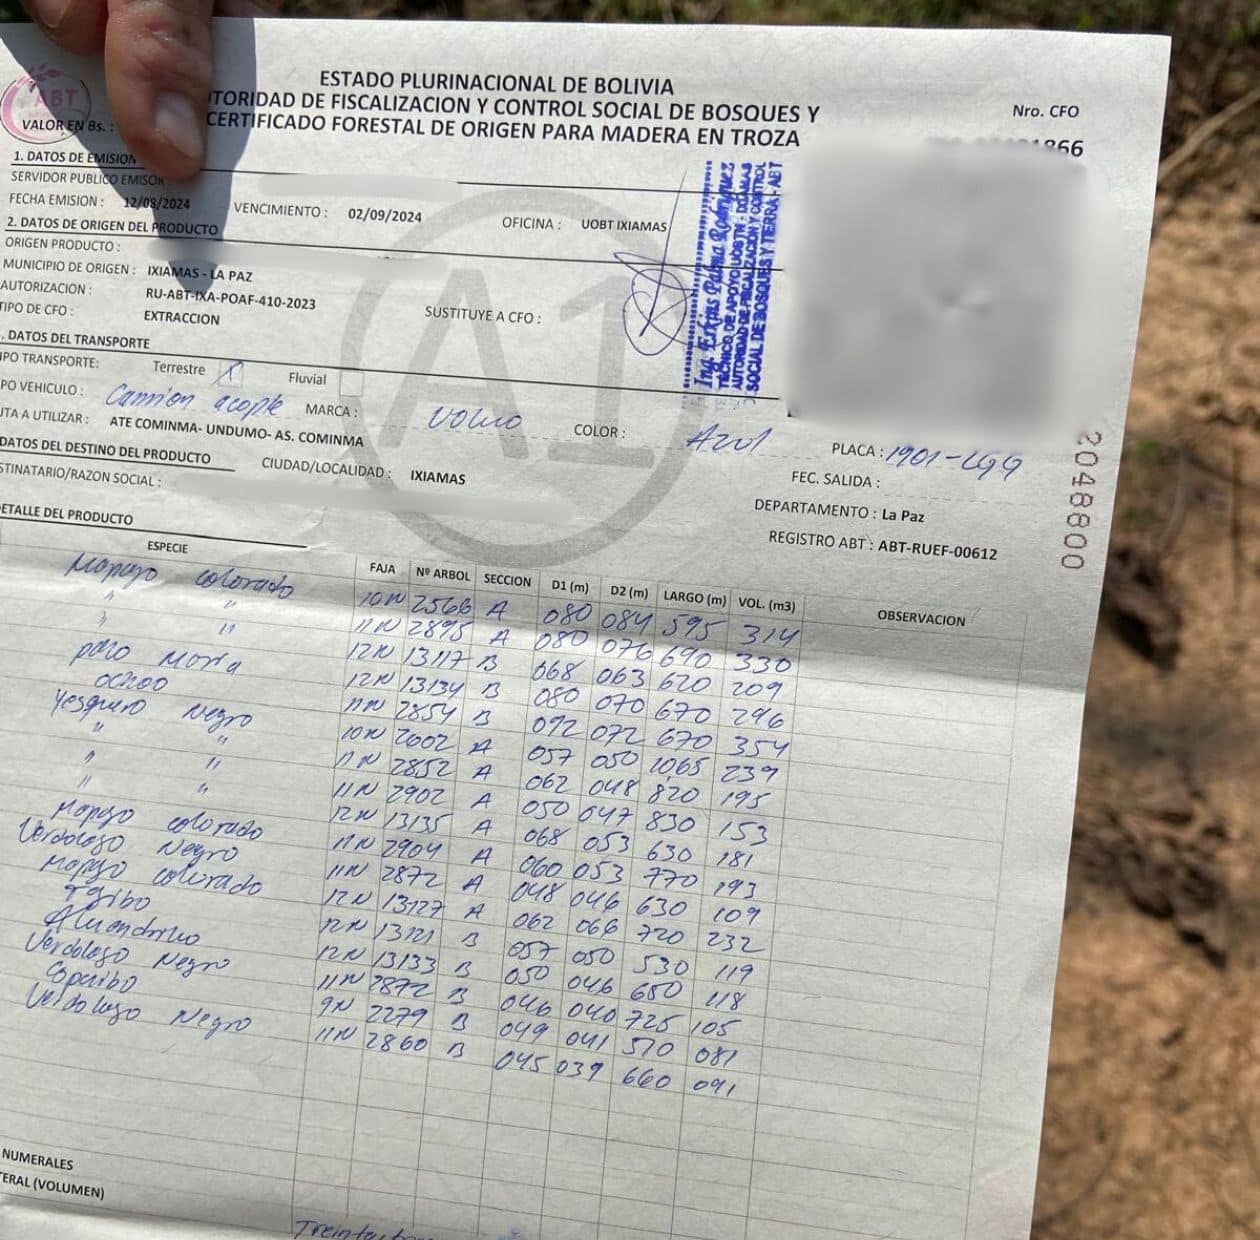 ABT
ESTADO PLURINACIONAL DE BOLIVIA
TORIDAD DE FISCALIZACION Y CONTROL SOCIAL DE BOSQUES Y
CERTIFICADO FORESTAL DE ORIGEN PARA MADERA EN TROZA
Nro. CFO
866
VALOR EN Bs. :
1. DATOS DE EMISION
SERVIDOR PUBLICO EMISOR :
FECHA EMISION : 12/08/2024 VENCIMIENTO : 02/09/2024 OFICINA : UOBT IXIAMAS
2. DATOS DE ORIGEN DEL PRODUCTO
ORIGEN PRODUCTO :
MUNICIPIO DE ORIGEN : IXIAMAS - LA PAZ
AUTORIZACION : RU-ABT-IXA-POAF-410-2023
TIPO DE CFO : EXTRACCION SUSTITUYE A CFO :
. DATOS DEL TRANSPORTE
IPO TRANSPORTE: Terrestre X Fluvial
PO VEHICULO : Camión acople MARCA : Volvo COLOR : Azul PLACA : 1901-LGG
UTA A UTILIZAR : ATE COMINMA- UNDUMO- AS. COMINMA FEC. SALIDA :
DATOS DEL DESTINO DEL PRODUCTO CIUDAD/LOCALIDAD : IXIAMAS DEPARTAMENTO : La Paz
STINATARIO/RAZON SOCIAL : REGISTRO ABT : ABT-RUEF-00612
2048800
DETALLE DEL PRODUCTO
ESPECIE FAJA Nº ARBOL SECCION D1 (m) D2 (m) LARGO (m) VOL. (m3) OBSERVACION
Mapajo colorado 10N 2566 A 080 084 595 314
" " 11N 2895 A 080 076 690 330
" " 12N 13117 B 068 063 620 209
palo Maria 12N 13134 B 080 070 670 296
ochoo 11N 2854 B 092 072 670 354
Yesquero Negro 10N 2002 A 057 050 1065 239
" " 11N 2852 A 062 048 820 195
" " 11N 2902 A 050 047 830 153
" " 12N 13135 A 068 053 630 181
Mapajo colorado 11N 2904 A 060 053 770 193
Verdolago Negro 11N 2872 A 048 046 630 109
Mapajo colorado 12N 13127 A 062 066 720 232
Tajibo 12N 13121 B 057 050 530 119
Almendrillo 12N 13133 B 050 046 650 118
Verdolago Negro 11N 2872 B 046 040 725 105
Coparibo 9N 2279 B 049 041 510 081
Verdolago Negro 11N 2860 B 045 039 660 091
NUMERALES
TERAL (VOLUMEN)
Ing. Erlins Palma Rodriguez
TÉCNICO DE APOYO UOBTN - IXIAMAS
AUTORIDAD DE FISCALIZACIÓN Y CONTROL
SOCIAL DE BOSQUES Y TIERRA - ABT